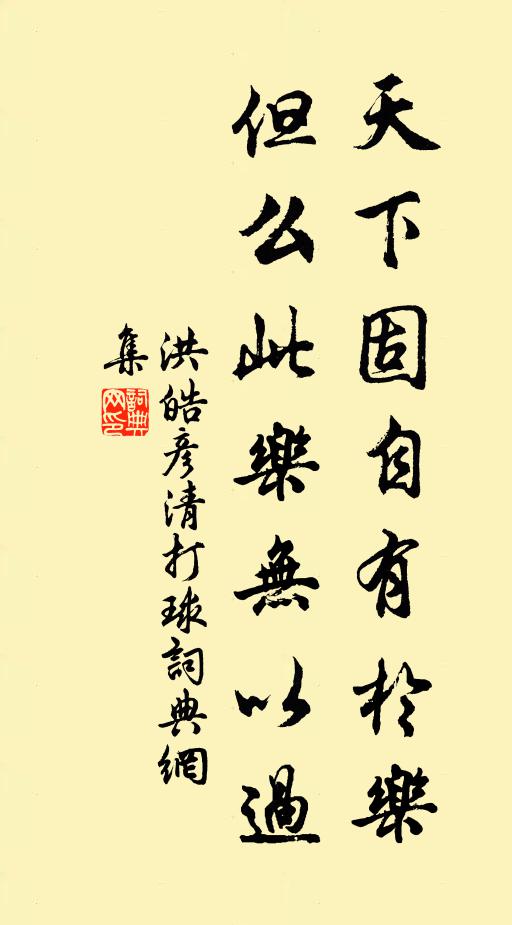 天下固自有於樂
但么此樂無以過
洪皓彥清打球詞典網
集
詞典网印